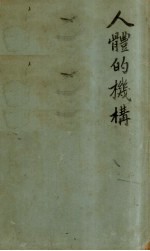 人體的機構